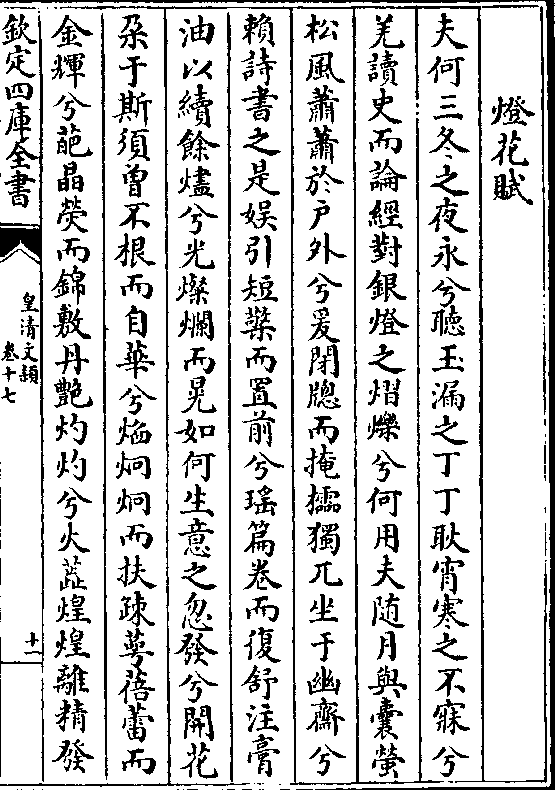 燈花賦
夫何三冬之夜永兮聽玉漏之丁丁耿宵寒之不寐兮
羌讀史而論經對銀燈之熠爍兮何用夫随月與囊螢
松風蕭蕭於户外兮爰閉牕而掩櫺獨兀坐于幽齋兮
賴詩書之是娱引短檠而置前兮瑶篇卷而復舒注膏
油以續餘燼兮光燦爛而晃如何生意之忽發兮開花
朶于斯須曾不根而自華兮焰炯炯而扶疎蕚蓓蕾而
金輝兮葩晶熒而錦敷丹艷灼灼兮火蕋煌煌離精發
欽定四庫全書
皇清文頴
卷十七
十一